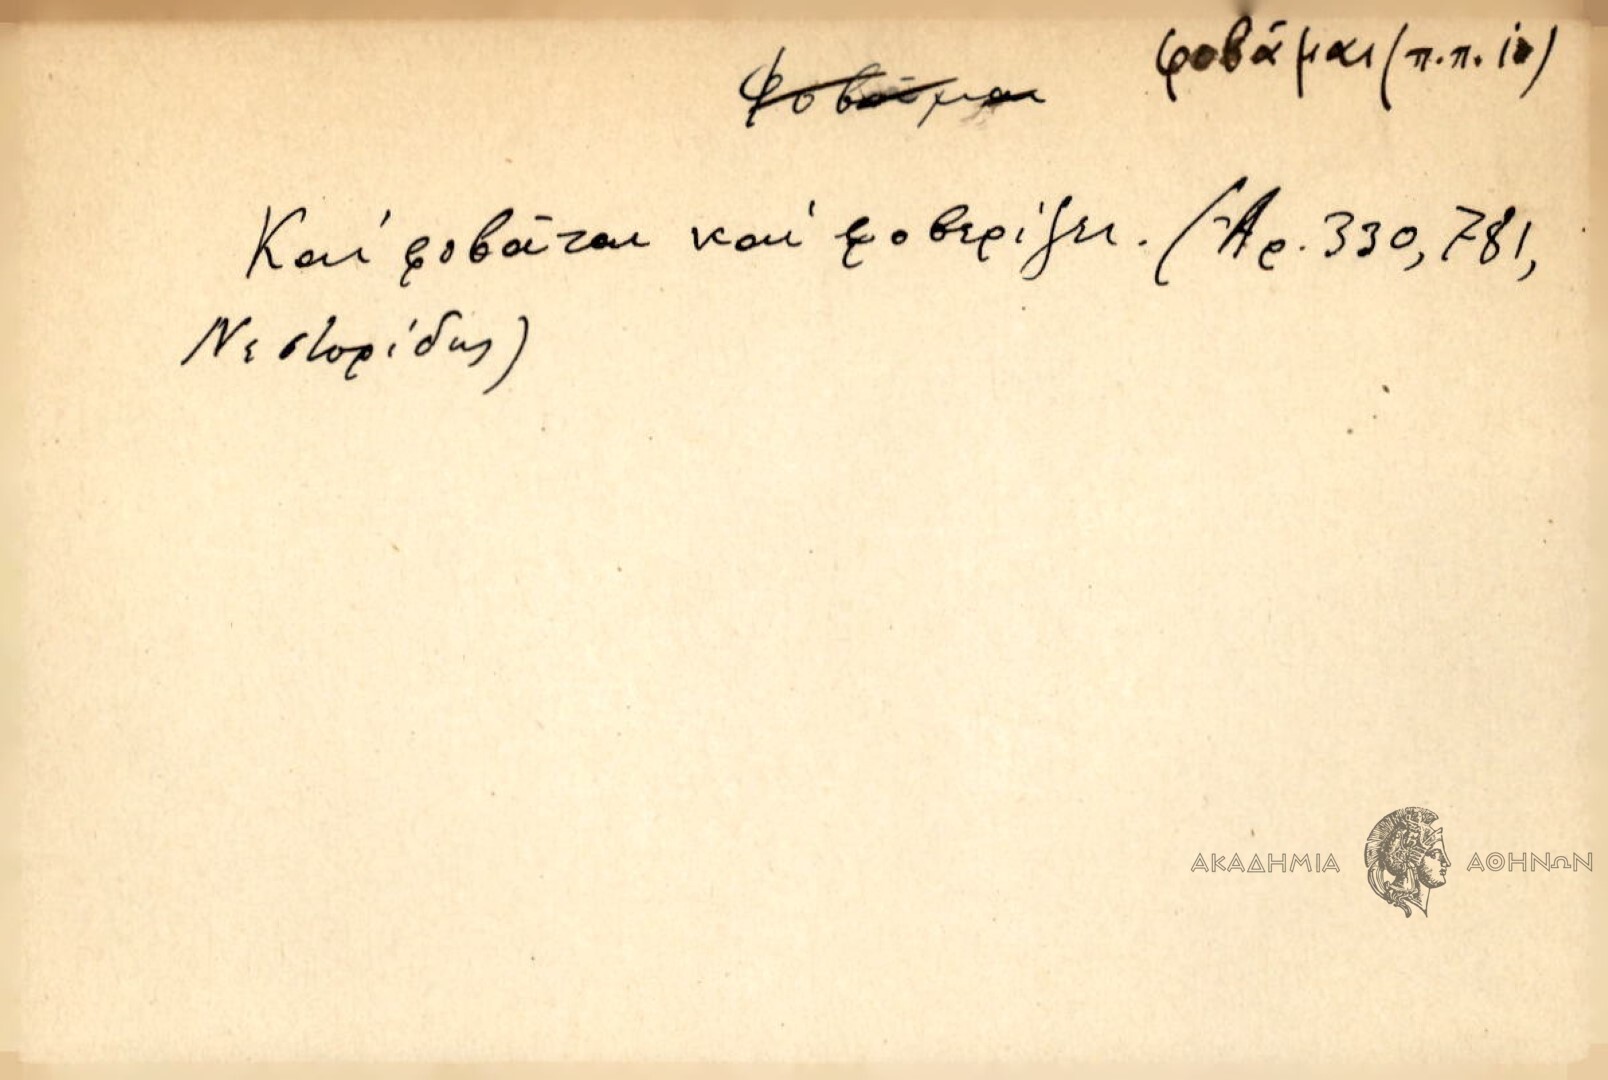 φοβᾶμαι (π.π. ιο)
Φοβᾶμαι
Καί φοβᾶται καί φοβερίζει. (Ἀρ. 330, 781,
Νεστορίδης)
ΑΚΑΔΗΜΙΑ ΑΘΗΝΩΝ